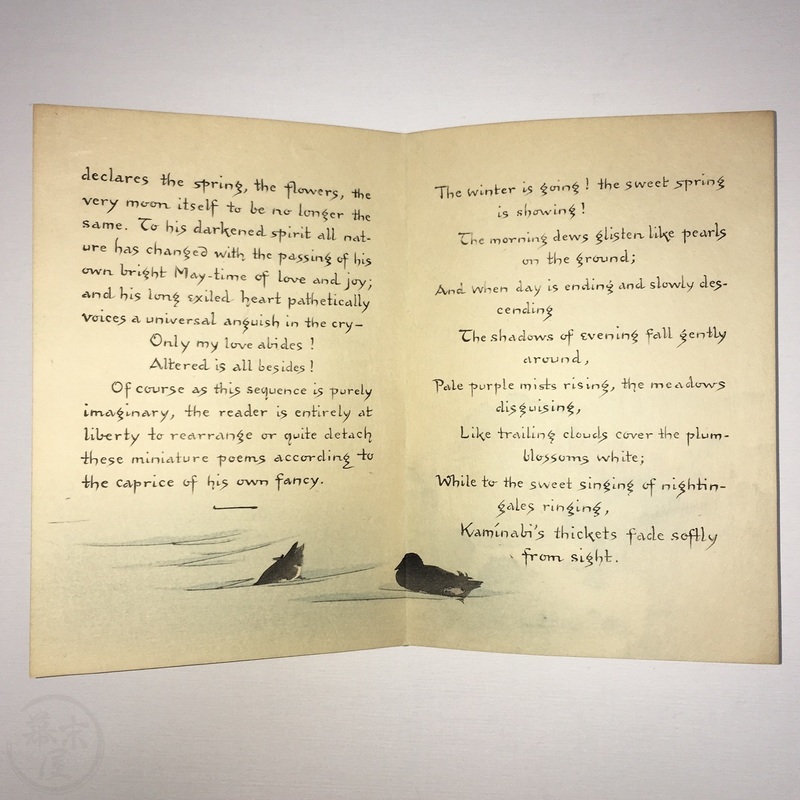 declares the spring, the flowers, the
very moon itself to be no longer the
same. To his darkened spirit all nat-
ure has changed with the passing of his
own bright May-time of love and joy;
and his long exiled heart pathetically
voices a universal anguish in the cry-
Only my love abides !
Altered is all besides !
Of course as this sequence is purely
imaginary, the reader is entirely at
liberty to rearrange or quite detach
these miniature poems according to
the caprice of his own fancy.
The winter is going ! the sweet spring
is showing !
The morning dews glisten like pearls
on the ground;
And when day is ending and slowly des-
cending
The shadows of evening fall gently
around,
Pale purple mists rising, the meadows
disguising,
Like trailing clouds cover the plum-
blossoms white;
While to the sweet singing of nightin-
gales ringing,
Kamínabi's thickets fade softly
from sight.
幕末屋